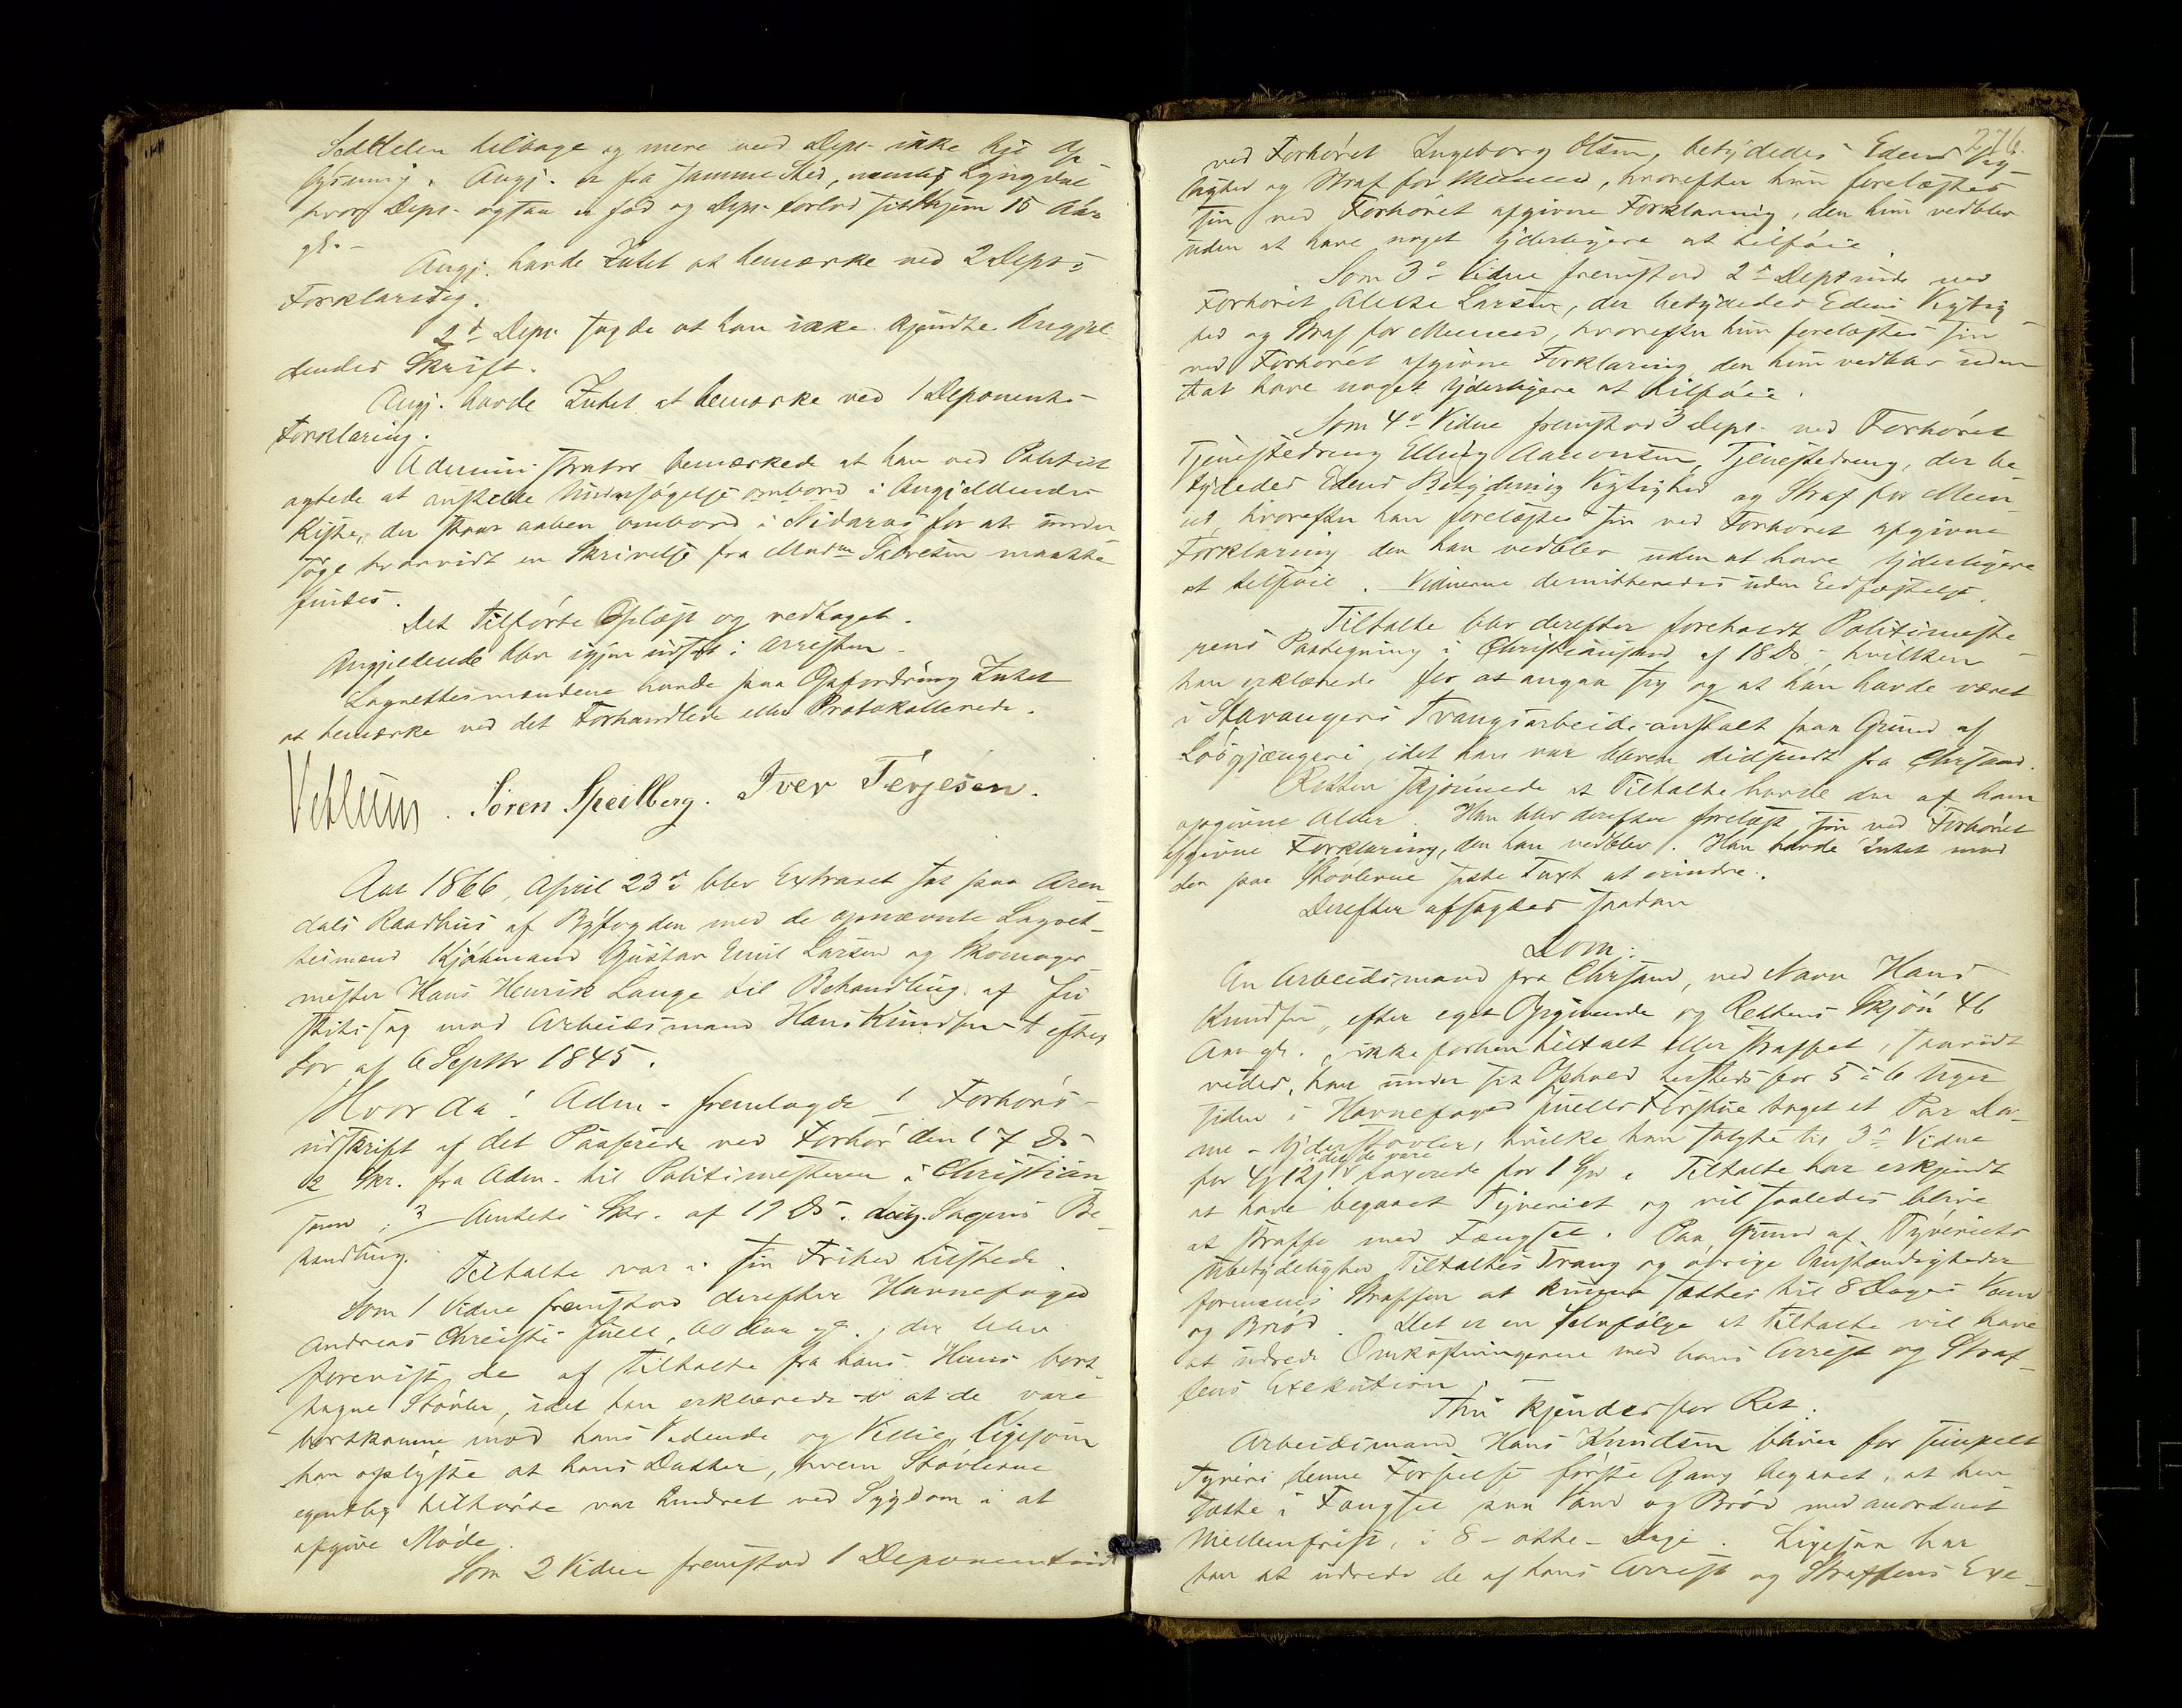 Seddelen tilbage og mere ved Dept. ikke
lysning. Angj. er fra samme Sted, nemlig Lyngdal
hvor Dept. ogsaa er fød og Dept. forlod sit Hjem 15 Aar
gl. -
Angj. havde Intet at bemærke ved 2 Dept.s
Forklaring.
2d Dept. sagde at han ikke kjendte Angjæl
dendes Skrift.
Angj. havde Intet at bemærke ved 1 Deponents
Forklaring.
Administrator bemærkede at han ved Politiet
agtede at anstille Undersøgelse ombord i Angjeldendes
Kiste, der staar aaben ombord i Nidaros for at under
søge hvorvidt en Skrivelse fra Madm maatte
findes.
Det Tilførte Oplæst og vedtaget.
Angjeldende blev igjen indsat i Arresten.
Lagrettesmændene havde paa Opfordring Intet
at bemærke ved det Forhandlede eller Protokollerede.
Søren Speilberg. Iver Terjesen.
Aar 1866, April 23de blev Extraret sat paa Aren
dals Raadhus af Byfogden med de opnævnte Lagret
tesmænd Kjøbmand Gustav Emil Larsen og Skomager
mester Hans Henrik Lange til Behandling af Ju
stitssag mod Arbeidsmand Hans Knudsen efter
Lov af 6 Septbr 1845.
Hvor da! Adm. fremlagde 1 Forhørs-
udskrift af det Passerede ved Forhør den 17 Ds
2 Skr. fra Adm. til Politimesteren i Christian
sand, 3 Amtets Skr. af 19 Ds. ang. Sagens Be
handling.
Tiltalte var i sin Frihed tilstede.
Som 1 Vidne fremstod derefter Havnefoged
Andreas Christi Juell, Aar gl., der blev
forevist de af Tiltalte fra hans Huus bort
tagne Støvler, idet han erklærede at de vare
bortkomne mod hans Vidende og Villie, ligesom
han oplyste at hans Datter, hvem Støvlerne
egentlig tilhørte var hindret ved Sygdom i at
afgive Møde.
Som 2 Vidne fremstod 1 Deponentinde
276.
ved Forhøret Ingeborg Olsen, betydedes Edens Vig
tighed og Straf for Meened, hvorefter hun forelæstes
sin ved Forhøret afgivne Forklaring, den hun vedblev
uden at have noget yderligere at tilføie.
Som 3de Vidne fremstod 2d Deptinde ved
Forhøret Larsen, der betydedes Edens Vigtig
hed og Straf for Meened, hvorefter hun forelæstes sin
ved Forhøret afgivne Forklaring, den hun vedblev uden
at have noget yderligere at tilføie.
Som 4de Vidne fremstod 3 Dept. ved Forhøret
Tjenestedreng Elling Aanonsen, Tjenestedreng, der be
tydedes Edens Betydning Vigtighed og Straf for Meen
ed, hvorefter han forelæstes sin ved Forhøret afgivne
Forklaring, den han vedblev uden at have yderligere
at tilføie. - Vidnerne demitteredes uden Eedfæstelse.
Tiltalte blev derefter foreholdt Politimeste
rens Paategning i Christiansand af 18 Ds, hvilken
han erklærede for at angaa sig og at han havde været
i Stavangers Tvangsarbeidsanstalt paa Grund af
Løsgjængeri, idet han var bleven didsendt fra Chrsand.
Retten skjønnede at Tiltalte havde den af ham
opgivne Alder. Han blev derefter forelæst sin ved Forhøret
afgivne Forklaring, den han vedblev. Han havde Intet mod
den paa Støvlerne satte Taxt at erindre.
Derefter afsagdes saadan
Dom:
En Arbeidsmand fra Chrsand, ved Navn Hans
Knudsen, efter eget Opgivende og Rettens Skjøn 46
Aar gl., ikke forhen tiltalt eller straffet, saavidt
vides, har under sit Ophold hersteds for 5 à 6 Uger
siden i Havnefoged Juells Forstue taget et Par Da
me-Yderstøvler, hvilke han solgte til 3de Vidne
for 4 12 s, idet de vare taxerede for 1 Spd. Tiltalte har erkjendt
at have begaaet Tyveriet og vil saaledes blive
at straffe med Fængsel. Paa Grund af Tyveriets
Ubetydelighed, Tiltaltes Trang og øvrige Omstændigheder
formenes Straffen at kunne sættes til 8 Dages Vand
og Brød. Det er en Selvfølge at Tiltalte vil have
at udrede Omkostningerne med hans Arrest og Straf
fens Exekution.
Thi kjendes for Ret:
Arbeidsmand Hans Knudsen bliver for simpelt
Tyveri, denne Forseelse første Gang begaaet, at hen
sætte i Fængsel paa Vand og Brød med anordnet
Mellemfrist, i 8 - otte - Dage. Ligesaa har
han at udrede de af hans Arrest og Straffens Exe-